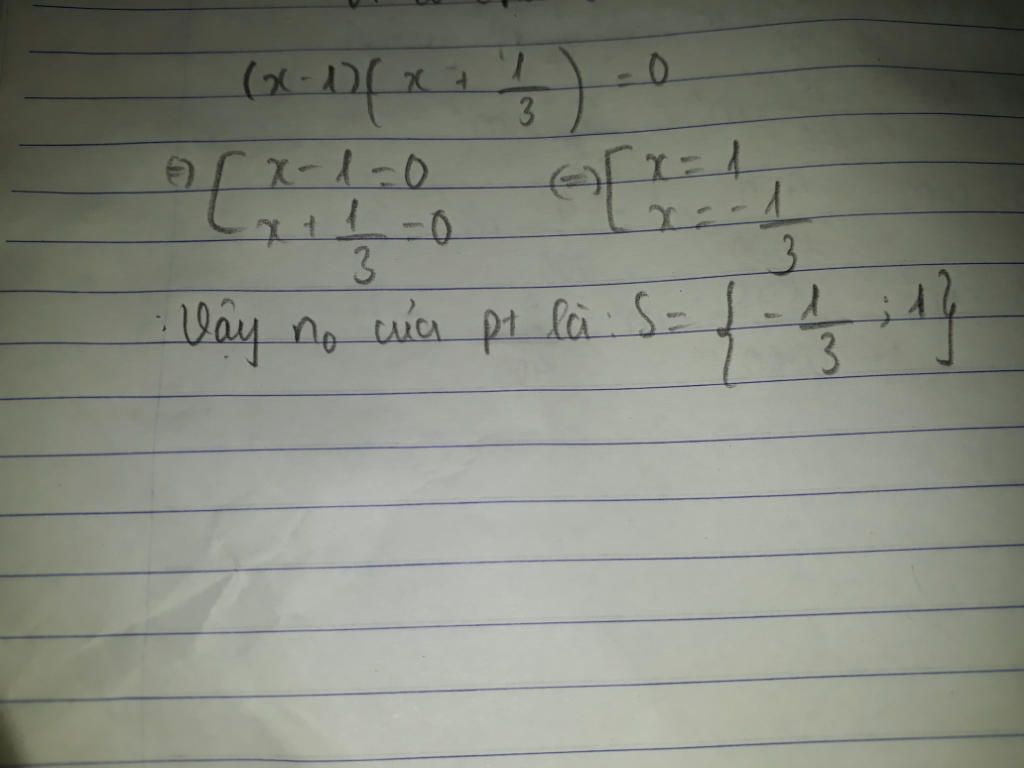 (x-1)(x + 1/3) = 0
⇔ [ x-1=0 ⇔ [ x=1
x + 1/3 = 0 x = -1/3
: Vậy no của pt là: S = { -1/3 ; 1}